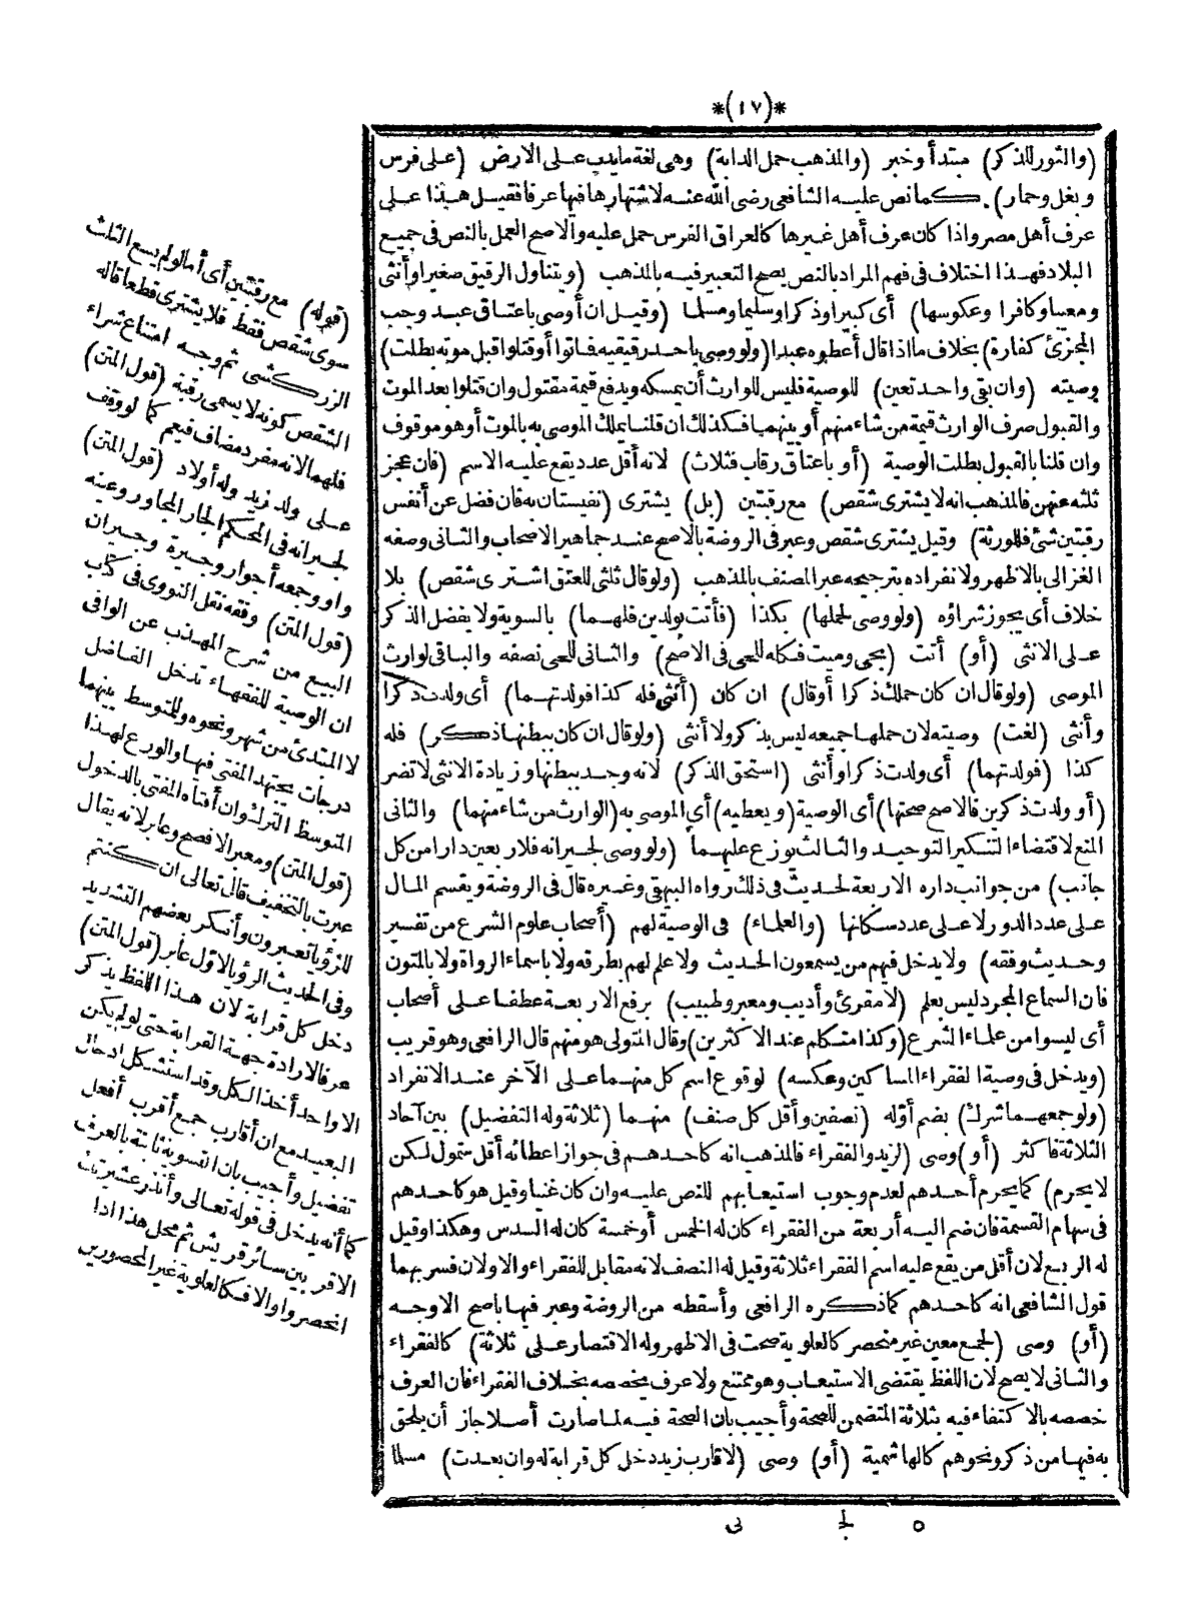 *(١٧)*
(والثور للذكر) مبتدأ وخبر (والمذهب حمل الدابة) وهى لغة مايدب على الارض (على فرس
وبغل وحمار). كمانص عليه الشافعى رضى الله عنه لاشتهارها فيها عرفا فقيل هذا على
عرف أهل مصر واذا كان عرف أهل غيرها كالعراق الفرس حمل عليه والاصح العمل بالنص فى جميع
البلاد فهذا اختلاف فى فهم المراد بالنص يصح التعبير فيه بالمذهب (ويتناول الرقيق صغيرا وأنثى
ومعيبا وكافرا وعكوسها) أى كبيرا وذكرا وسليما ومسلما (وقيل ان أوصى باعتاق عبد وجب
المجزئ كفارة) بخلاف مااذا قال أعطوه عبدا (ولو وصى باحد رقيقيه فماتوا أوقتلوا قبل موته بطلت)
وصيته (وان بقى واحد تعين) للوصية فليس للوارث أن يمسكه ويدفع قيمة مقتول وان قتلوا بعد الموت
والقبول صرف الوارث قيمة من شاء منهم أو بينهما فكذلك ان قلنا يملك الموصى به بالموت أو هو موقوف
وان قلنا بالقبول بطلت الوصية (أو باعتاق رقاب فثلاث) لانه أقل عدد يقع عليه الاسم (فان عجز
ثلثه عنهن فالمذهب انه لا يشترى شقص) مع رقبتين (بل) يشترى (نفيستان به فان فضل عن أنفس
رقبتين شئ فللورثة) وقيل يشترى شقص وعبر فى الروضة بالاصح عند جماهير الاصحاب والثانى وصفه
الغزالى بالاظهر ولانفراده بترجيحه عبر المصنف بالمذهب (ولو قال ثلثى للعتق اشترى شقص) بلا
خلاف أى يجوز شراؤه (ولو وصى لحملها) بكذا (فأتت بولدين فلهما) بالسوية ولا يفضل الذكر
على الانثى (أو) أتت (بحى وميت فكله للحى فى الاصح) والثانى للحى نصفه والباقى لوارث
الموصى (ولو قال ان كان حملك ذكرا أو قال) ان كان (أنثى فله كذا فولدتهما) أى ولدت ذكرا
وأنثى (لغت) وصيته لان حملها جميعه ليس بذكر ولا أنثى (ولو قال ان كان ببطنها ذكر) فله
كذا (فولدتهما) أى ولدت ذكرا وأنثى (استحق الذكر) لانه وجد ببطنها وزيادة الانثى لا تضر
(أو ولدت ذكرين فالاصح صحتها) أى الوصية (ويعطيه) أى الموصى به (الوارث من شاء منهما) والثانى
المنع لاقتضاء التنكير التوحيد والثالث يوزع عليهما (ولو وصى لجيرانه فلاربعين دارا من كل
جانب) من جوانب داره الاربعة لحديث فى ذلك رواه البيهقى وغيره قال فى الروضة ويقسم المال
على عدد الدور لا على عدد سكانها (والعلماء) فى الوصية لهم (أصحاب علوم الشرع من تفسير
وحديث وفقه) ولا يدخل فيهم من يسمعون الحديث ولا علم لهم بطرقه ولا باسماء الرواة ولا بالمتون
فان السماع المجرد ليس بعلم (لا مقرئ وأديب ومعبر وطبيب) برفع الاربعة عطفا على أصحاب
أى ليسوا من علماء الشرع (وكذا متكلم عند الاكثرين) وقال المتولى هو منهم قال الرافعى وهو قريب
(ويدخل فى وصية الفقراء المساكين وعكسه) لوقوع اسم كل منهما على الآخر عند الانفراد
(ولو جمعهما شرك) بضم أوله (نصفين وأقل كل صنف) منهما (ثلاثة وله التفضيل) بين آحاد
الثلاثة فاكثر (أو) وصى (لزيد والفقراء فالمذهب انه كاحدهم فى جواز اعطائه أقل متمول لكن
لا يحرم) كما يحرم أحدهم لعدم وجوب استيعابهم للنص عليه وان كان غنيا وقيل هو كاحدهم
فى سهام القسمة فان ضم اليه أربعة من الفقراء كان له الخمس أو خمسة كان له السدس وهكذا وقيل
له الربع لان أقل من يقع عليه اسم الفقراء ثلاثة وقيل له النصف لانه مقابل للفقراء والاولان فسر بهما
قول الشافعى انه كاحدهم كماذكره الرافعى وأسقطه من الروضة وعبر فيها باصح الاوجه
(أو) وصى (لجمع معين غير منحصر كالعلوية صحت فى الاظهر وله الاقتصار على ثلاثة) كالفقراء
والثانى لا يصح لان اللفظ يقتضى الاستيعاب وهو ممتنع ولا عرف يخصصه بخلاف الفقراء فان العرف
خصصه بالاكتفاء فيه بثلاثة المتضمن للصحة وأجيب بان الصحة فيه لما صارت أصلا جاز أن يلحق
به فيها من ذكر ونحوهم كالهاشمية (أو) وصى (لاقارب زيد دخل كل قرابة له وان بعدت) مسلما
(قوله) مع رقبتين أى أما لو لم يسع الثلث
سوى شقص فقط فلا يشترى قطعا قاله
الزركشى ثم وجه امتناع شراء
الشقص كونه لا يسمى رقبة (قول المتن)
فلهما لانه مفرد مضاف فيعم كما لو وقف
على ولد زيد وله أولاد (قول المتن)
لجيرانه فى المحكم الجار المجاور وعينه
واو وجمعه أجوار وجيرة وجيران
(قول المتن) وفقه نقل النووى فى كتاب
البيع من شرح المهذب عن الوافى
ان الوصية للفقهاء تدخل الفاضل
لا المبتدئ من شهر ونحوه وللمتوسط بينهما
درجات يجتهد المفتى فيها والورع لهذا
المتوسط الترك وان أفتاه المفتى بالدخول
(قول المتن) ومعبر الافصح وعابر لانه يقال
عبرت بالتخفيف قال تعالى ان كنتم
للرؤيا تعبرون وأنكر بعضهم التشديد
وفى الحديث الرؤيا لاول عابر (قول المتن)
دخل كل قرابة لان هذا اللفظ يذكر
عرفا لارادة جهة القرابة حتى لو لم يكن
الا واحد أخذ الكل وقد استشكل ادخال
البعيد مع ان أقارب جمع أقرب أفعل
تفضيل وأجيب بان التسوية ثابتة بالعرف
كما أنه يدخل فى قوله تعالى وأنذر عشيرتك
الاقربين سائر قريش ثم محل هذا اذا
انحصروا والا فكالعلوية غير المحصورين
٥ لج لى